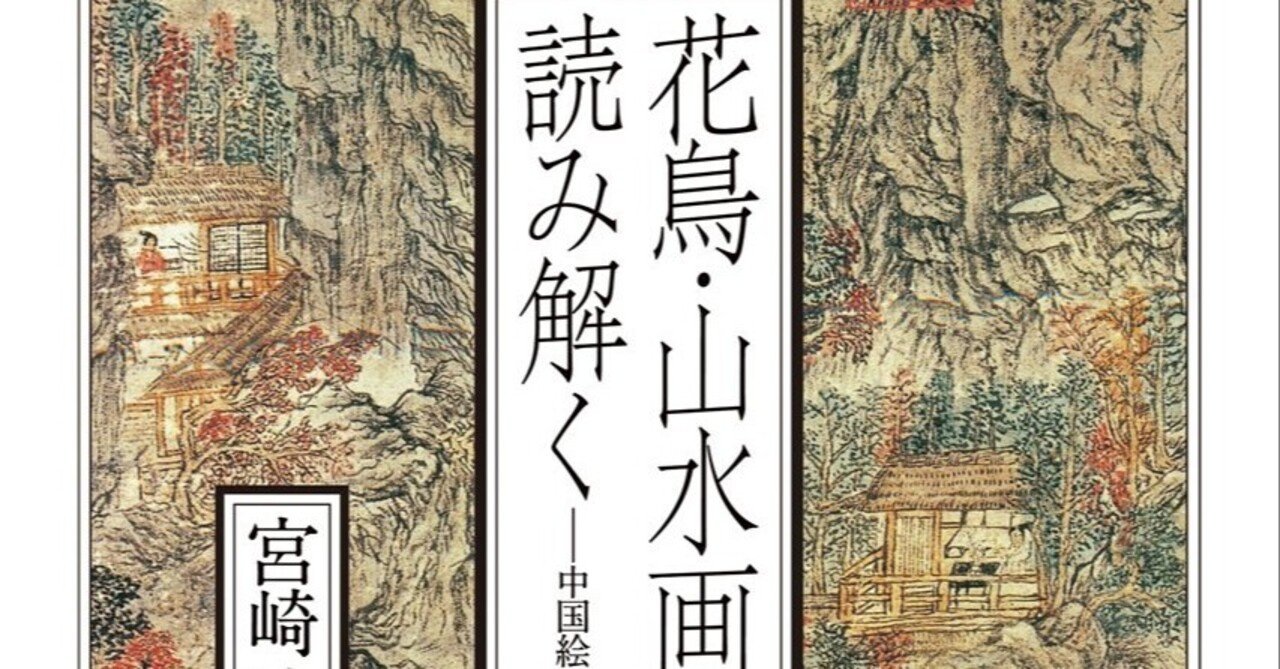 花鳥・山水画
読み解く―中国絵
宮崎